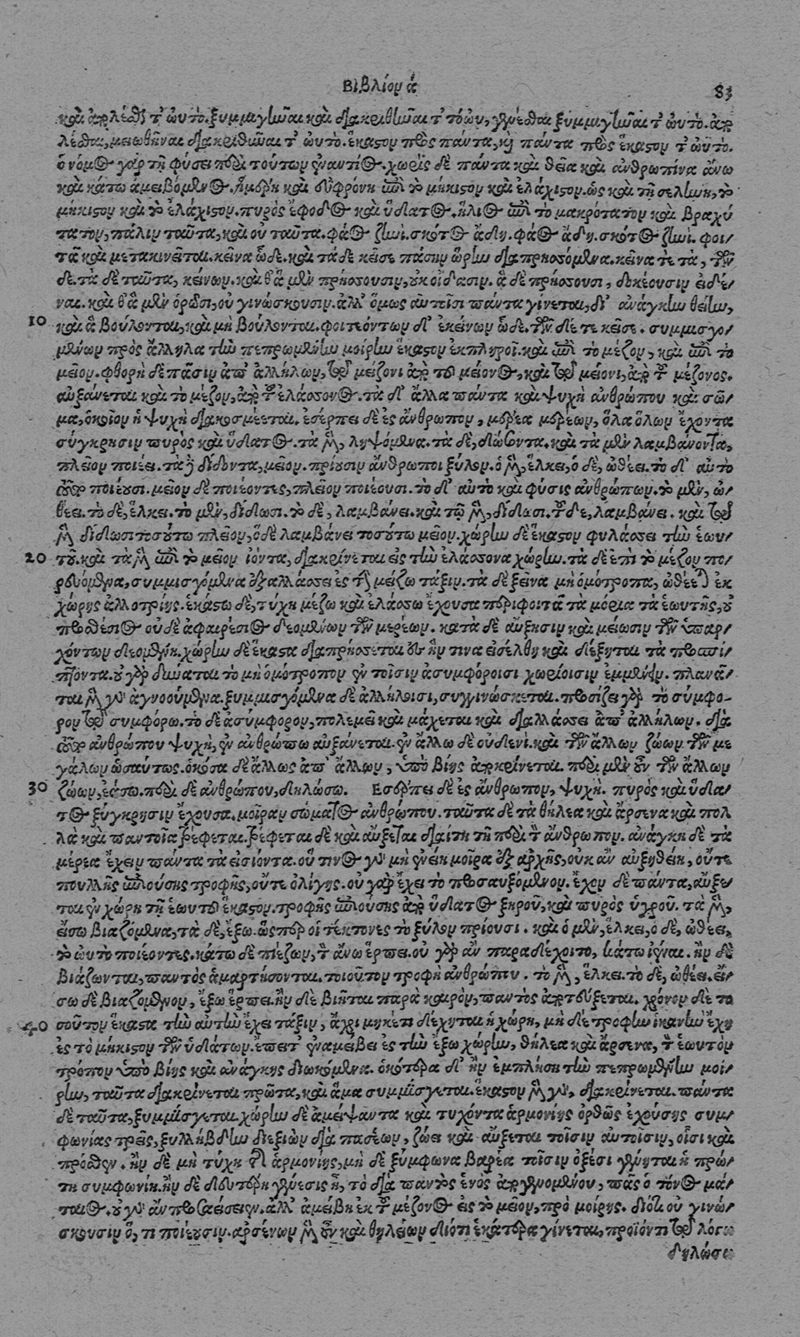 Βιβλίον ά 83
καὶ ἀπολέσθαι τ' ὠυτὸ. ξυμμιγῆναι καὶ διακριθῆναι τ' τὸ ὠυ, γενέσθαι ξυμμιγῆναι τ' ὠυτὸ. ἀπο
λέσθαι, μειωθῆναι διακριθῆναι τ' ὠυτὸ. ἕκαστον πρὸς πάντα, καὶ πάντα πρὸς ἕκαστον τ' ὠυτὸ.
ὁ νόμος γὰρ τῆ φύσει περὶ τούτων ἐναντίος. χωρὶς δὲ πάντα καὶ θεῖα καὶ ἀνθρωπίνα ἄνω
καὶ κάτω ἀμειβόμενος. ἡμέρη καὶ εὐφρόνη ἐπὶ τὸ μήκιστον καὶ ἐλάχιστον. ὡς καὶ τῆ σελήνη, τὸ
μήκιστον καὶ τὸ ἐλάχιστον. πυρὸς ἔφοδος καὶ ὕδατος. ἥλιος ἐπὶ τὸ μακρότατον καὶ βραχύ
τατον, πάλιν ταῦτα, καὶ οὐ ταῦτα. φάος ζηνὶ. σκότος ἅδη. φάος ἅδη. σκότος ζηνὶ. φοι/
τᾶ καὶ μετακινεῖται. κεῖνα ὧδε. καὶ τὰ δὲ κεῖσε πᾶσην ὥρην διαπρησσόμενα. κεῖνα τε τὰ, τῶν
δε. τὰ δὲ ταῦτα, κείνων. καὶ θ' ἃ μὲν πρήσσουσιν, οὐκ οἴδασιν. ἃ δὲ πρήσσουσι, δοκέουσιν εἰδέ/
ναι. καὶ θ' ἃ μὲν ὁρῶσι, οὐ γινώσκουσιν. ἀλλ' ὅμως αὐτοῖσι πάντα γίνεται, δι' ἀνάγκην θείην,
10 καὶ ἃ βούλονται, καὶ μὴ βούλονται. φοιτεόντων δ' ἐκείνων ὧδε. τῶν δέ τε κεῖσε. συμμισγο/
μένων πρὸς ἄλληλα τὴν πεπρωμένην μοίρην ἕκαστον ἐκπληροῖ. καὶ ἐπὶ τὸ μέζον, καὶ ἐπὶ τὸ
μεῖον. φθορὴ δὲ πᾶσιν ἀπ' ἀλλήλων, τῷ μείζονι ἀπὸ τοῦ μείονος, καὶ τῷ μείονι, ἀπὸ τοῦ μέζονος.
αὐξάνεται καὶ τὸ μέζον, ἀπὸ τοῦ ἐλάσσονος. τὰ δ' ἄλλα πάντα καὶ ψυχὴ ἀνθρώπου καὶ σῶ/
μα, ὁκοῖον ἡ ψυχὴ διακοσμέεται. ἐσέρπει δὲ ἐς ἄνθρωπον, μέρεα μερέων, ὅλα ὅλων ἔχοντα
σύγκρησιν πυρὸς καὶ ὕδατος. τὰ μὲν, ληψόμενα. τὰ δὲ, δώσοντα. καὶ τὰ μὲν λαμβάνοντα,
πλεῖον ποιέει. τὰ δὲ διδόντα, μεῖον. πρίουσιν ἄνθρωποι ξύλον. ὁ μὲν, ἕλκει, ὁ δὲ, ὠθέει. τὸ δ' αὐτὸ
τοῦτο ποιέουσι. μεῖον δὲ ποιέοντες, πλεῖον ποιέουσι. τὸ δ' αὐτὸ καὶ φύσις ἀνθρώπων. τὸ μὲν, ὠ/
θέει. τὸ δὲ, ἕλκει. τὸ μὲν, δίδωσι. τὸ δὲ, λαμβάνει. καὶ τῷ μὲν, δίδωσι. τοῦ δὲ, λαμβάνει. καὶ τῷ
μὲν δίδωσι τοσούτω πλεῖον, ὃ δὲ λαμβάνει τοσούτω μεῖον. χώρην δὲ ἕκαστον φυλάσσει τὴν ἑωυ/
20 τοῦ. καὶ τὰ μὲν ἐπὶ τὸ μεῖον ἰόντα, διακρίνεται εἰς τὴν ἐλάσσονα χώρην. τὰ δὲ ἐπὶ τὸ μέζον πο/
ρευόμενα, συμμισγόμενα ἐξαλλάσσει ἐς τὴν μείζω τάξιν. τὰ δὲ ξεῖνα μὴ ὁμότροπα, ὠθέεται ἐκ
χώρης ἀλλοτρίης. ἑκάστω δὲ, τύχη μέζω καὶ ἐλάσσω ἔχουσα περιφοιτᾶ τὰ μόρια τὰ ἑωυτῆς, οὐ
προσθέσιος οὐδὲ ἀφαιρέσιος δεομένων τῶν μερέων. κατὰ δὲ αὔξησιν καὶ μείωσιν τῶν ὑπαρ/
χόντων δεομένη. χώρην δὲ ἕκαστα διαπρήσσεται ἐς ἣν τινα εἰσέλθη καὶ δέξηται τὰ προσπί/
πτοντα. οὐ γὰρ δύναται τὸ μὴ ὁμότροπον ἐν τοῖσιν ἀσυμφόροισι χωρίοισιν ἐμμένειν. πλανᾶ/
ται μὲν γὰρ ἀγνοούμενα. ξυμμισγόμενα δὲ ἀλλήλοισι, συγγινώσκεται. προσίζει γὰρ τὸ σύμφο-
ρον τῷ συμφόρω. τὸ δὲ ἀσύμφορον, πολεμεῖ καὶ μάχεται καὶ διαλλάσσει ἀπ' ἀλλήλων. διὰ
τοῦτο ἀνθρώπου ψυχὴ, ἐν ἀνθρώπω αὐξάνεται. ἐν ἄλλω δὲ οὐδενὶ. καὶ τῶν ἄλλων ζώων τῶν με
γάλων ὡσαύτως. ὁκόσα δὲ ἄλλως ἀπ' ἄλλων, ὑπὸ βίης ἀποκρίνεται. περὶ μὲν οὖν τῶν ἄλλων
30 ζώων, ἐάσω. περὶ δὲ ἀνθρώπου, δηλώσω. Ἐσέρπει δὲ ἐς ἄνθρωπον, ψυχὴ. πυρὸς καὶ ὕδα/
τος ξύγκρησιν ἔχουσα. μοῖραν σώματος ἀνθρώπου. ταῦτα δὲ τὰ θήλεα καὶ ἄρσενα καὶ πολ
λὰ καὶ παντοῖα τρέφεται. τρέφεται δὲ καὶ αὔξεται διαίτη τῆ περὶ τὸν ἄνθρωπον. ἀνάγκη δὲ τὰ
μέρεα ἔχειν πάντα τὰ εἰσιόντα. οὗ τινος γὰρ μὴ ἐνείη μοῖρα ἐξ ἀρχῆς, οὐκ ἂν αὐξηθείη, οὔτε
πουλλῆς ἐπιούσης τροφῆς, οὔτε ὀλίγης. οὐ γὰρ ἔχει τὸ προσαυξόμενον. ἔχον δὲ πάντα, αὔξε/
ται ἐν χώρη τῆ ἑωυτοῦ ἕκαστον. τροφῆς ἐπιούσης ἀπὸ ὕδατος ξηροῦ, καὶ πυρὸς ὑγροῦ. τὰ μὲν,
εἴσω βιαζόμενα, τὰ δὲ, ἔξω. ὥσπερ οἱ τέκτονες τὸ ξύλον πρίουσι. καὶ ὁ μὲν, ἕλκει, ὁ δὲ, ὠθέει.
τὸ ὠυτὸ ποιέοντες. κάτω δὲ πιέζων, τὸ ἄνω ἕρπει. οὐ γὰρ ἂν παραδέχοιτο, κάτω ἰέναι. ἢν δὲ
βιάζωνται, παντὸς ἁμαρτήσονται. τοιοῦτον τροφὴ ἀνθρώπου. τὸ μὲν, ἕλκει. τὸ δὲ, ὠθέει. εἴ/
σω δὲ βιαζομένου, ἔξω ἕρπει. ἢν δὲ βιῆται παρὰ καιρὸν, παντὸς ἀποτεύξεται. χρόνον δὲ το
40 σοῦτον ἕκαστα τὴν αὐτὴν ἔχει τάξιν, ἄχρι μηκέτι δέχηται ἡ χώρη, μὴ δὲ τροφὴν ἱκανὴν ἔχη
ἐς τὸ μήκιστον τῶν ὑδάτων. ἔπειτ' ἐναμείβει ἐς τὴν ἔξω χώρην, θήλεα καὶ ἄρσενα, τὸν ἑωυτὸν
τρόπον ὑπὸ βίης καὶ ἀνάγκης διωκόμενα. ὁκότερα δ' ἢν ἐμπλήση τὴν πεπρωμένην μοί/
ρην, ταῦτα διακρίνεται πρῶτα, καὶ ἅμα συμμίσγεται. ἕκαστον μὲν γὰρ, διακρίνεται. πάντα
δὲ ταῦτα, ξυμμίσγεται. χώρην δὲ ἀμείψαντα καὶ τυχόντα ἁρμονίης ὀρθῶς ἐχούσης συμ/
φωνίας τρεῖς, ξυλλήβδην διεξιὼν διὰ πασέων, ζώει καὶ αὔξεται τοῖσιν αὐτοῖσιν, οἷσι καὶ
πρόσθεν. ἢν δὲ μὴ τύχη τῆς ἁρμονίης, μὴ δὲ ξύμφωνα βαρέα τοῖσιν ὀξέσι γένηται ἡ πρώ/
τη συμφωνίη. ἢν δὲ δευτέρη γένεσις ἢ, τὸ διὰ παντὸς ἑνὸς ἀπογενομένου, πᾶς ὁ τόνος μά/
ταιος. οὐ γὰρ ἂν προσαείσειεν. ἀλλ' ἀμείβη ἐκ τοῦ μέζονος ἐς τὸ μεῖον, πρὸ μοίρης. διότι οὐ γινώ/
σκουσιν ὅ, τι ποιέουσιν. ἀρσένων μὲν οὖν καὶ θηλείων διότι ἑκάτερα γίνεται, προϊόντι τῷ λόγω
δηλώσω